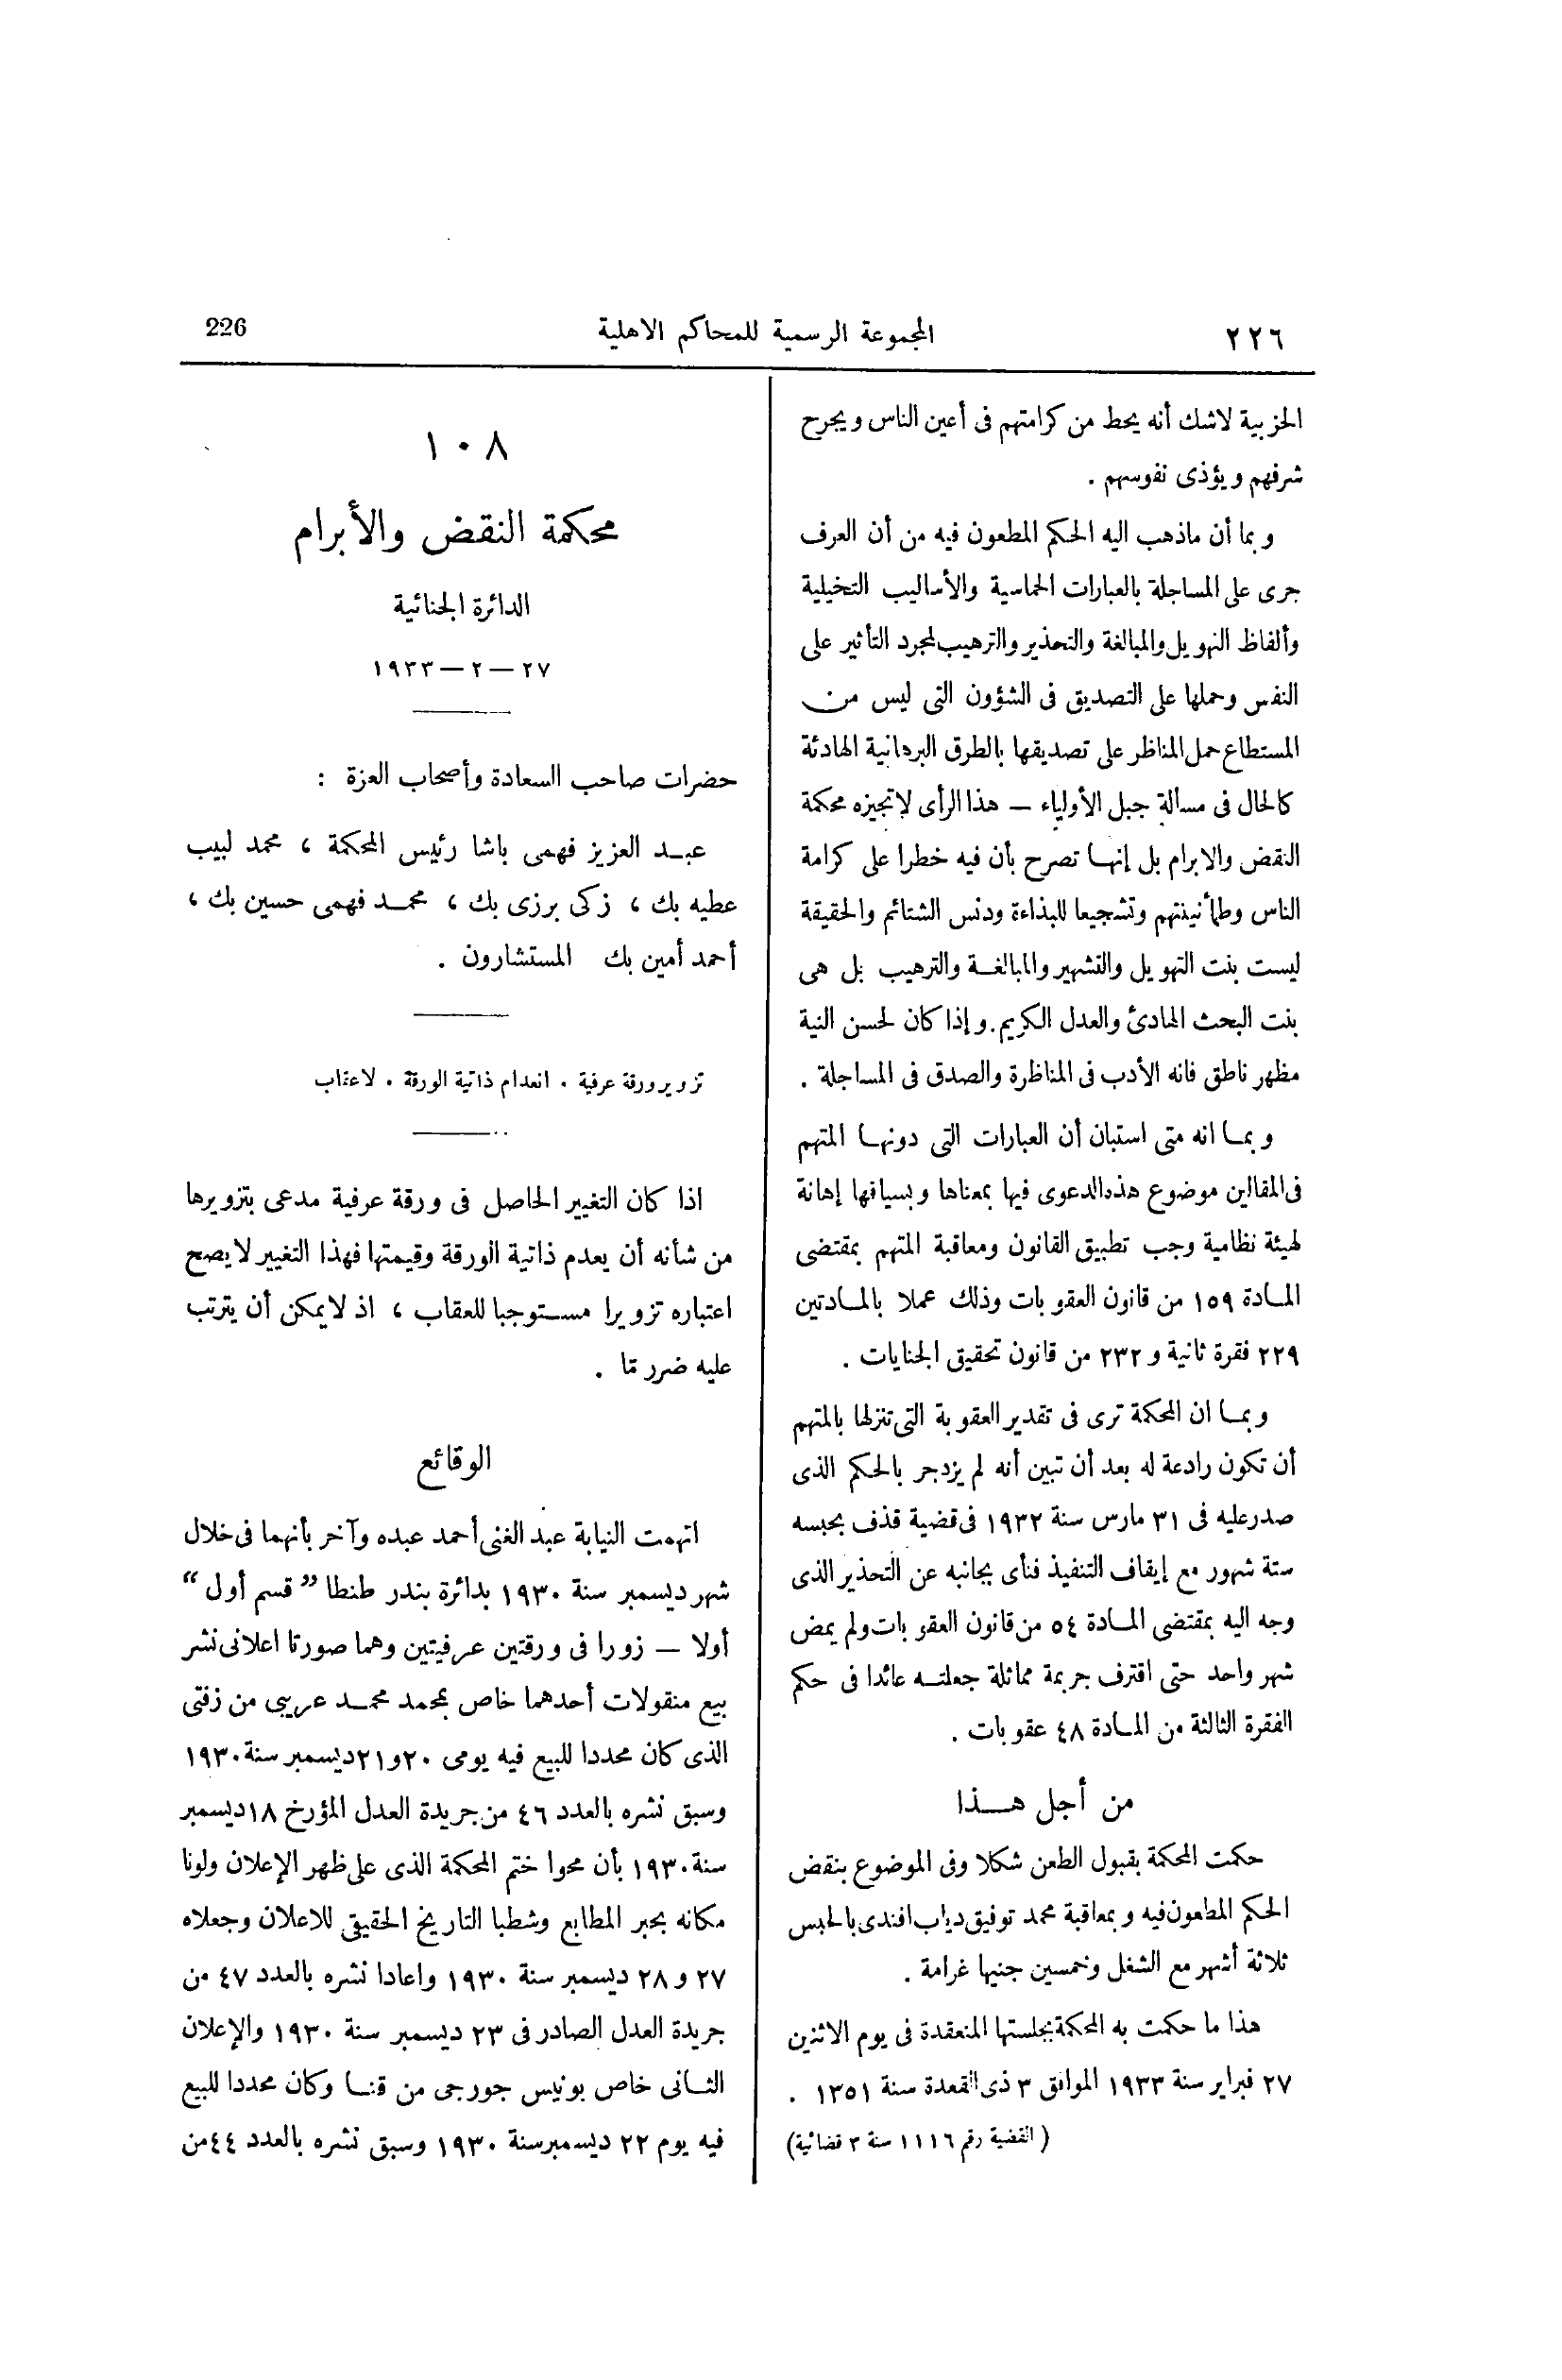 ٢٢٦
المجموعة الرسمية للمحاكم الاهلية
226
الحزبية لاشك أنه يحط من كرامتهم فى أعين الناس ويجرح
شرفهم ويؤذى نفوسهم .
وبما أن ماذهب اليه الحكم المطعون فيه من أن العرف
جرى على المساجلة بالعبارات الحماسية والأساليب التخيلية
وألفاظ التهويل والمبالغة والتحذير والترهيب لمجرد التأثير على
النفس وحملها على التصديق فى الشؤون التى ليس من
المستطاع حمل المناظر على تصديقها بالطرق البرهانية الهادئة
كالحال فى مسألة جبل الأولياء — هذا الرأى لاتجيزه محكمة
النقض والابرام بل إنها تصرح بأن فيه خطرا على كرامة
الناس وطمأنينتهم وتشجيعا للبذاءة ودنس الشتائم والحقيقة
ليست بنت التهويل والتشهير والمبالغة والترهيب بل هى
بنت البحث الهادئ والعدل الكريم . وإذا كان لحسن النية
مظهر ناطق فانه الأدب فى المناظرة والصدق فى المساجلة .
وبما انه متى استبان أن العبارات التى دونها المتهم
فى المقالين موضوع هذه الدعوى فيها بمعناها وبسياقها إهانة
لهيئة نظامية وجب تطبيق القانون ومعاقبة المتهم بمقتضى
المادة ١٥٩ من قانون العقوبات وذلك عملا بالمادتين
٢٢٩ فقرة ثانية و ٢٣٢ من قانون تحقيق الجنايات .
وبما ان المحكمة ترى فى تقدير العقوبة التى تنزلها بالمتهم
أن تكون رادعة له بعد أن تبين أنه لم يزدجر بالحكم الذى
صدر عليه فى ٣١ مارس سنة ١٩٣٢ فى قضية قذف بحبسه
ستة شهور مع إيقاف التنفيذ فنأى بجانبه عن التحذير الذى
وجه اليه بمقتضى المادة ٥٤ من قانون العقوبات ولم يمض
شهر واحد حتى اقترف جريمة مماثلة جعلته عائدا فى حكم
الفقرة الثالثة من المادة ٤٨ عقوبات .
من أجل هذا
حكمت المحكمة بقبول الطعن شكلا وفى الموضوع بنقض
الحكم المطعون فيه وبمعاقبة محمد توفيق دياب افندى بالحبس
ثلاثة أشهر مع الشغل وخمسين جنيها غرامة .
هذا ما حكمت به المحكمة بجلستها المنعقدة فى يوم الاثنين
٢٧ فبراير سنة ١٩٣٣ الموافق ٣ ذى القعدة سنة ١٣٥١ .
( القضية رقم ١١١٦ سنة ٣ قضائية)
١٠٨
محكمة النقض والأبرام
الدائرة الجنائية
٢٧ — ٢ — ١٩٣٣
حضرات صاحب السعادة وأصحاب العزة :
عبد العزيز فهمى باشا رئيس المحكمة ، محمد لبيب
عطيه بك ، زكى برزى بك ، محمد فهمى حسين بك ،
أحمد أمين بك المستشارون .
تزوير ورقة عرفية . انعدام ذاتية الورقة . لاعقاب
اذا كان التغيير الحاصل فى ورقة عرفية مدعى بتزويرها
من شأنه أن يعدم ذاتية الورقة وقيمتها فهذا التغيير لايصح
اعتباره تزويرا مستوجبا للعقاب ، اذ لايمكن أن يترتب
عليه ضرر مّا .
الوقائع
اتهمت النيابة عبد الغنى أحمد عبده وآخر بأنهما فى خلال
شهر ديسمبر سنة ١٩٣٠ بدائرة بندر طنطا ” قسم أول “
أولا — زورا فى ورقتين عرفيتين وهما صورتا اعلانى نشر
بيع منقولات أحدهما خاص بمحمد محمد عريبى من زفتى
الذى كان محددا للبيع فيه يومى ٢٠ و٢١ ديسمبر سنة ١٩٣٠
وسبق نشره بالعدد ٤٦ من جريدة العدل المؤرخ ١٨ ديسمبر
سنة ١٩٣٠ بأن محوا ختم المحكمة الذى على ظهر الإعلان ولونا
مكانه بحبر المطابع وشطبا التاريخ الحقيقى للاعلان وجعلاه
٢٧ و ٢٨ ديسمبر سنة ١٩٣٠ واعادا نشره بالعدد ٤٧ من
جريدة العدل الصادر فى ٢٣ ديسمبر سنة ١٩٣٠ والإعلان
الثانى خاص بونيس جورجى من قنا وكان محددا للبيع
فيه يوم ٢٢ ديسمبر سنة ١٩٣٠ وسبق نشره بالعدد ٤٤ من